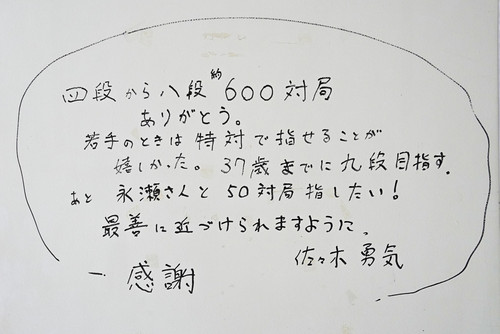 四段から八段約600対局
ありがとう。
若手のときは特対で指せることが
嬉しかった。37歳までに九段目指す.
あと 永瀬さんと50対局指したい!
最善に近づけられますように。
佐々木勇気
感謝